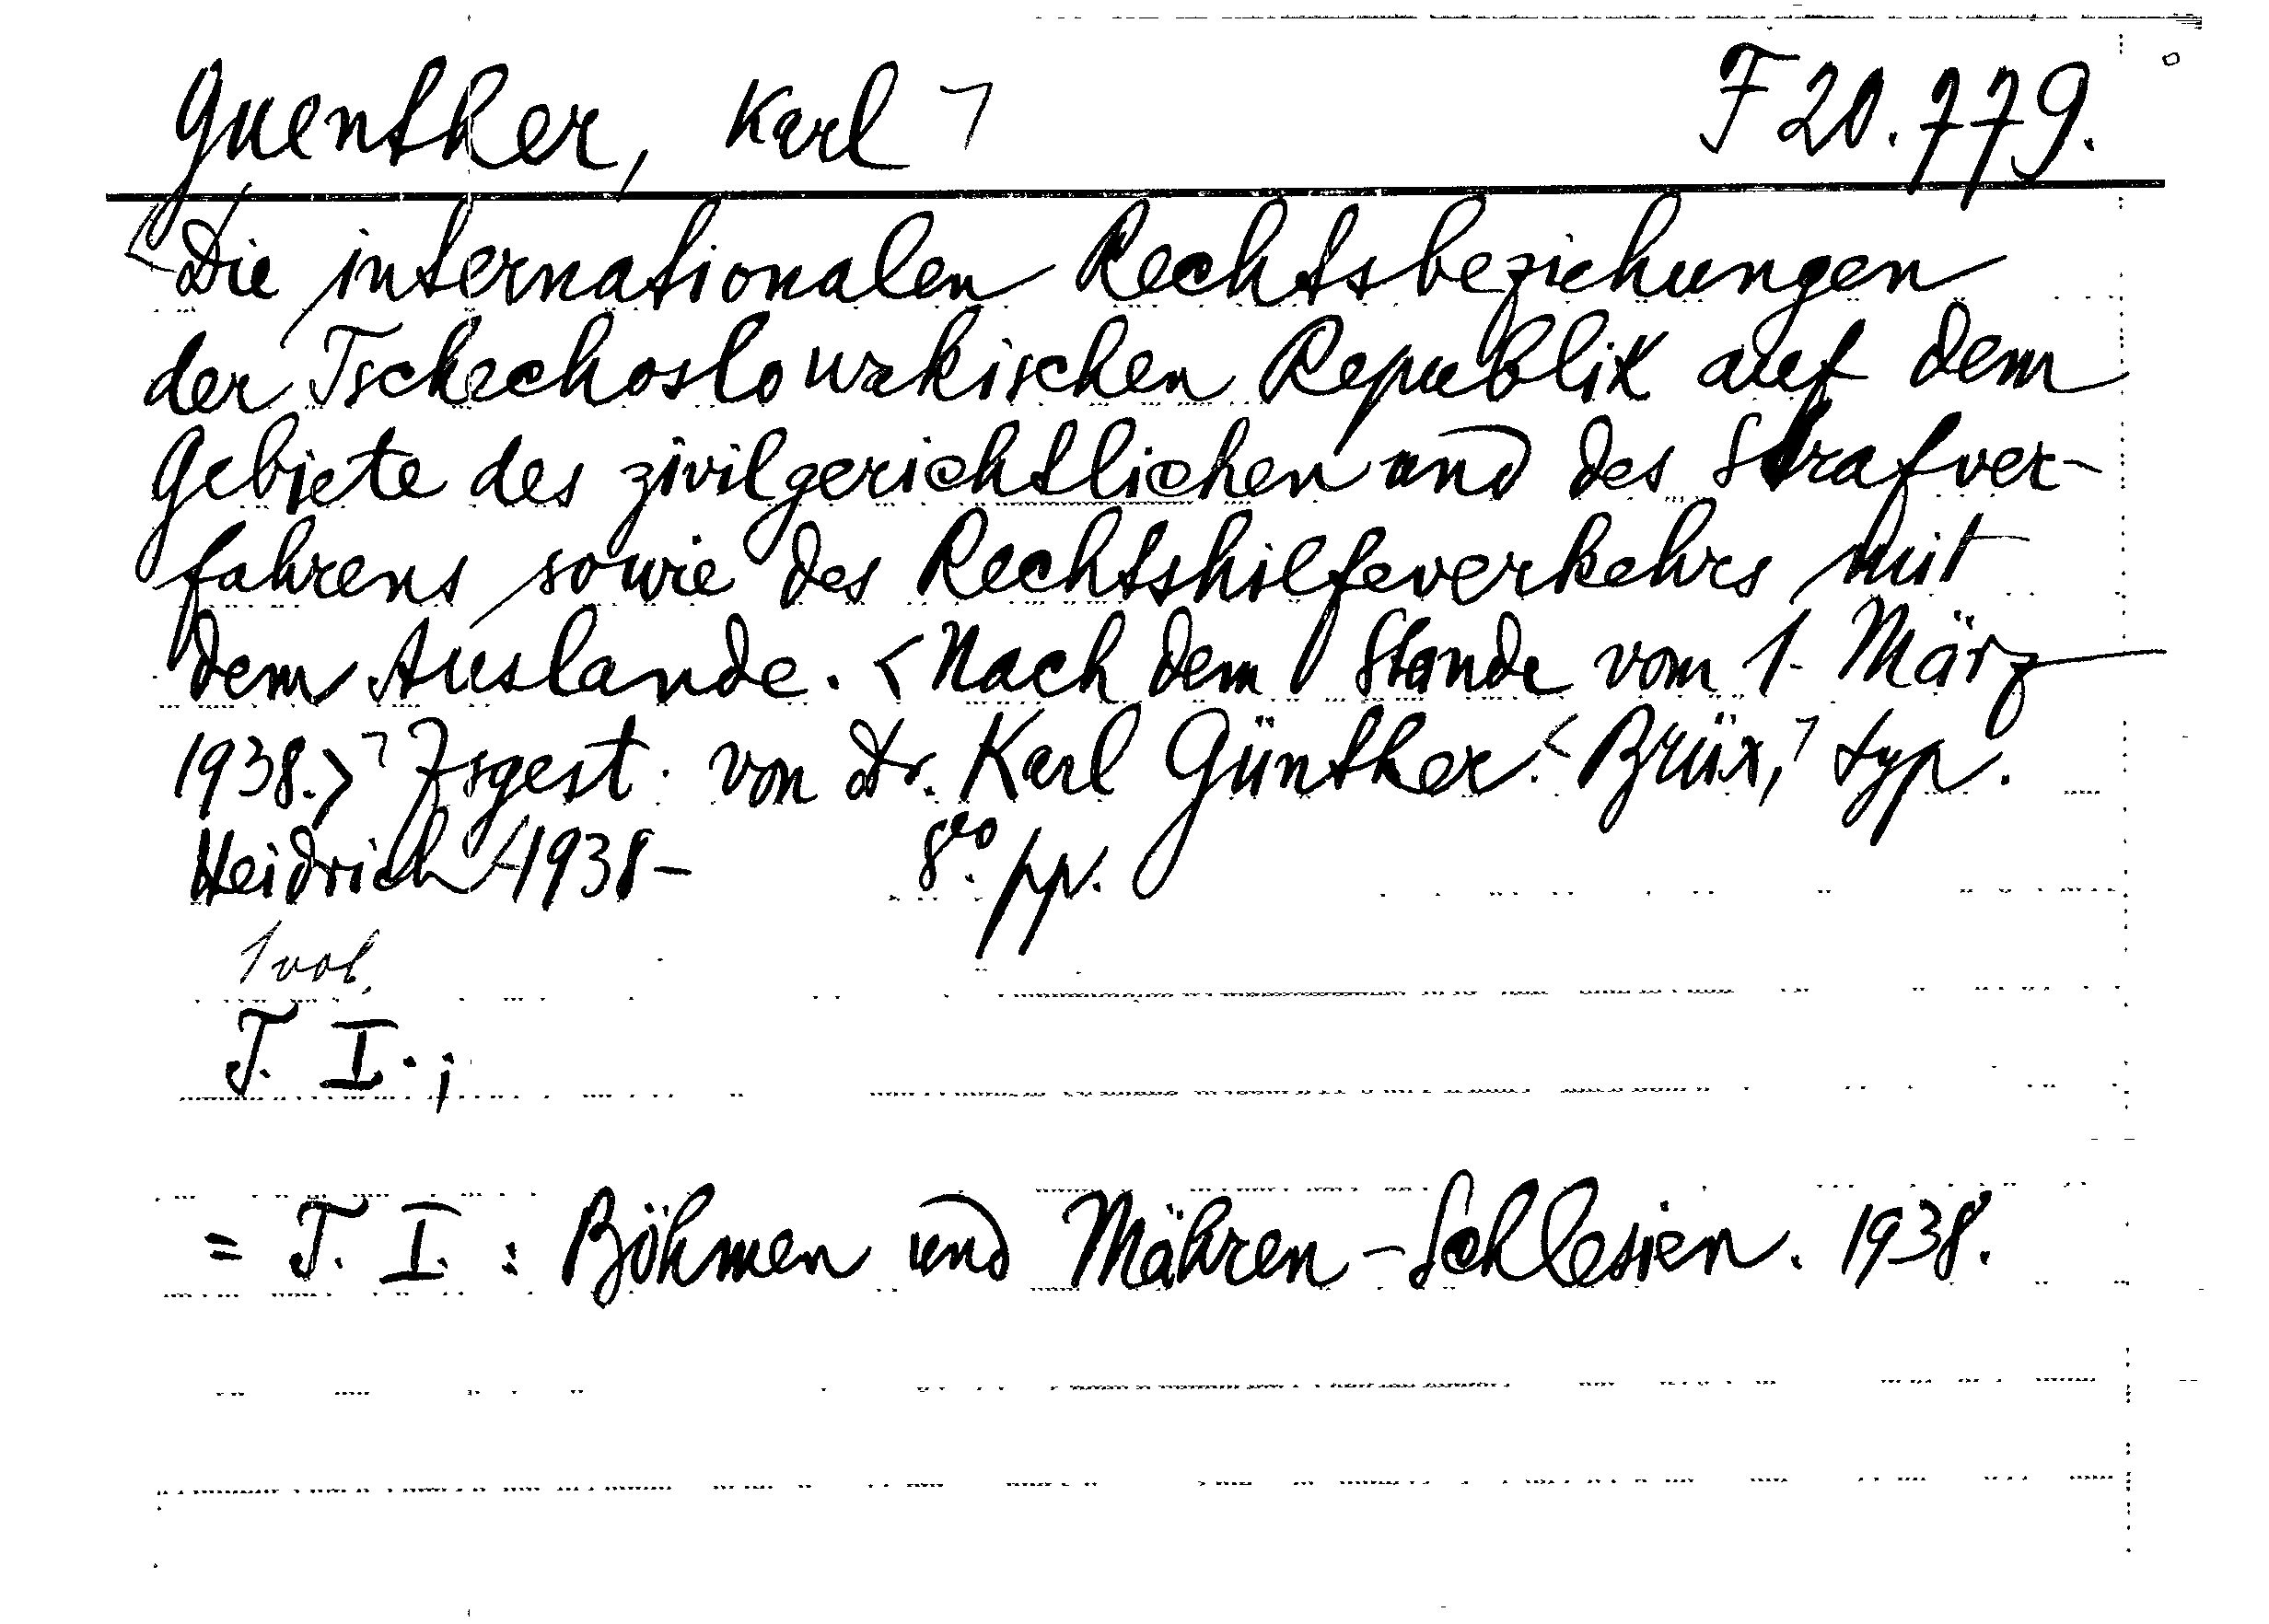 Guenther, Karl ⌐ F 20.779.
Die internationalen Rechtsbeziehungen
der Tschechoslowakischen Republik auf dem
Gebiete des zivilgerichtlichen und des Strafver-
fahrens sowie des Rechtshilfeverkehrs mit
dem Auslande. <Nach dem Stande vom 1. März
1938.> Zsgest. von Dr. Karl Günther. Brüx, typ.
Heidrich 1938- 8vo. pp.
1 vol.
T. I.;
= T. I. : Böhmen und Mähren-Schlesien. 1938.